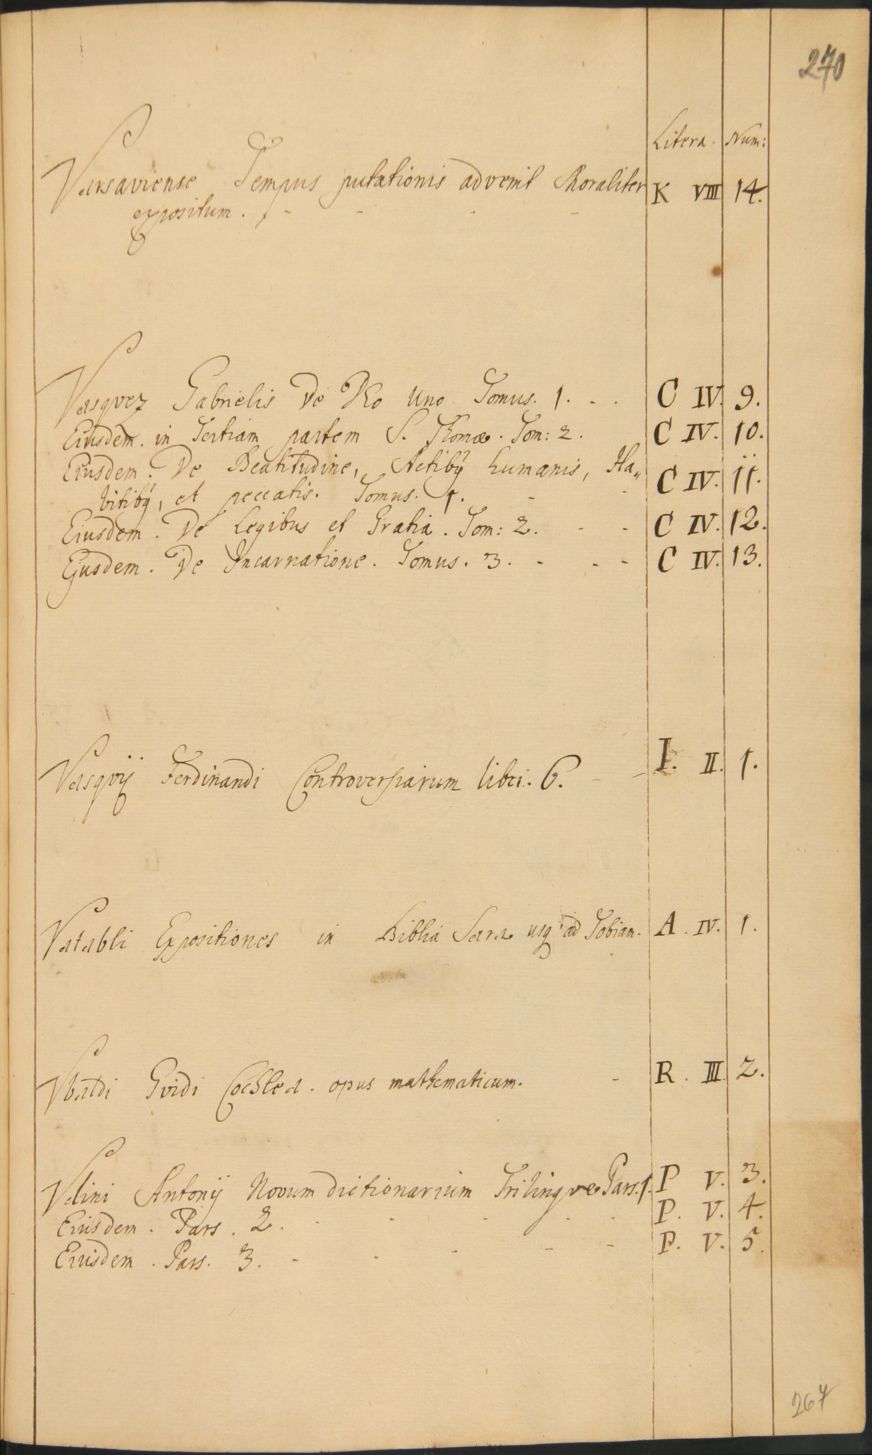 270
Litera. Num:
Varsaviense Tempus putationis advenit Moraliter K VIII 14.
expositum.
Vasqvez Gabrielis De Deo Uno Tomus. 1. C IV. 9.
Eiusdem. in Tertiam partem S. Thomæ. Tom: 2. C IV. 10.
Eiusdem. De Beatitudine, Actibꝰ humanis, Ha„ C IV. 11.
bitibꝰ, et peccatis. Tomus. 1.
Eiusdem. De Legibus et Gratia. Tom: 2. C IV. 12.
Ejusdem. De Incarnatione. Tomus. 3. C IV. 13.
Vasqvij Ferdinandi Controversiarum libri. 6. I. II. 1.
Vatabli Expositiones in Biblia Sacra usq; ad Tobiam. A. IV. 1.
Vbaldi Gvidi Cochlea. opus mathematicum. R. III 2.
Velini Antonij Novum dictionarium Trilingve Pars. 1. P V. 3.
Eiusdem. Pars. 2. P. V. 4.
Eiusdem. Pars. 3. P. V. 5.
267